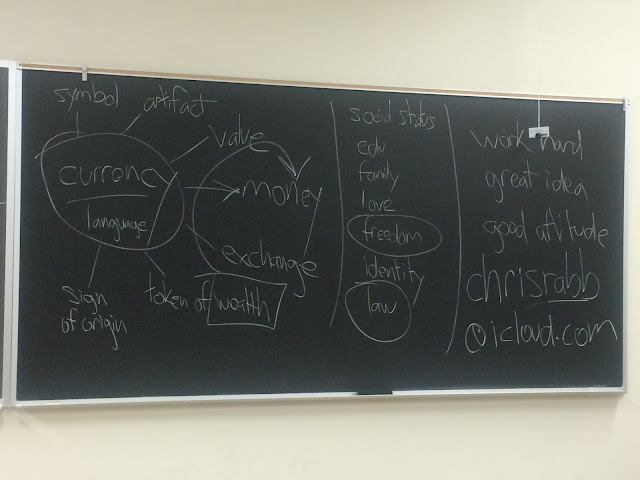 symbol
artifact
value
currency
money
language
exchange
sign
of origin
token of wealth
social status
edu
family
love
freedom
identity
law
work hard
great idea
good attitude
chrisrabb
@icloud.com